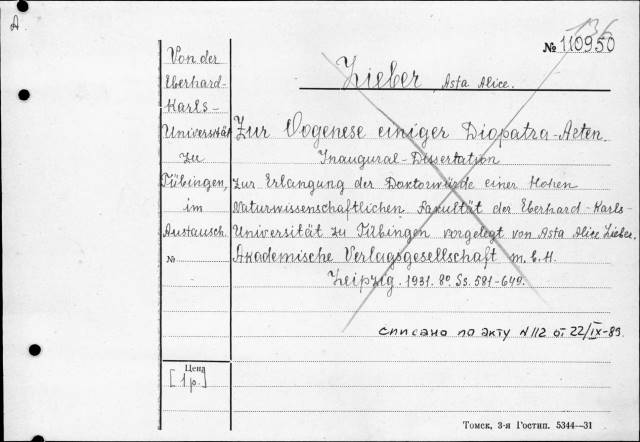 A
136
№ 110950
Lieber, Asta Alice.
Von der
Eberhard-
Karls-
Universität
zu
Tübingen,
im
Austausch.
№
Zur Oogenese einiger Diopatra-Arten.
Inaugural-Dissertation
zur Erlangung der Doktorwürde einer Hohen
Naturwissenschaftlichen Fakultät der Eberhard-Karls-
Universität zu Tübingen vorgelegt von Asta Alice Lieber.
Akademische Verlagsgesellschaft m.b.H.
Leipzig. 1931. 8°. Ss. 581-649.
списано по акту №112 от 22/IX-89.
Цена
[1 р.]
Томск, 3-я Гостип. 5344—31